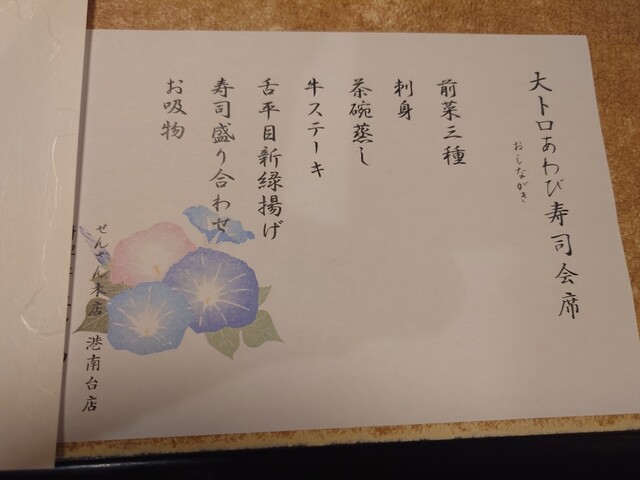 大トロあわび寿司会席
おしながき
前菜三種
刺身
茶碗蒸し
牛ステーキ
舌平目新緑揚げ
寿司盛り合わせ
お吸物
せんざん本店 港南台店